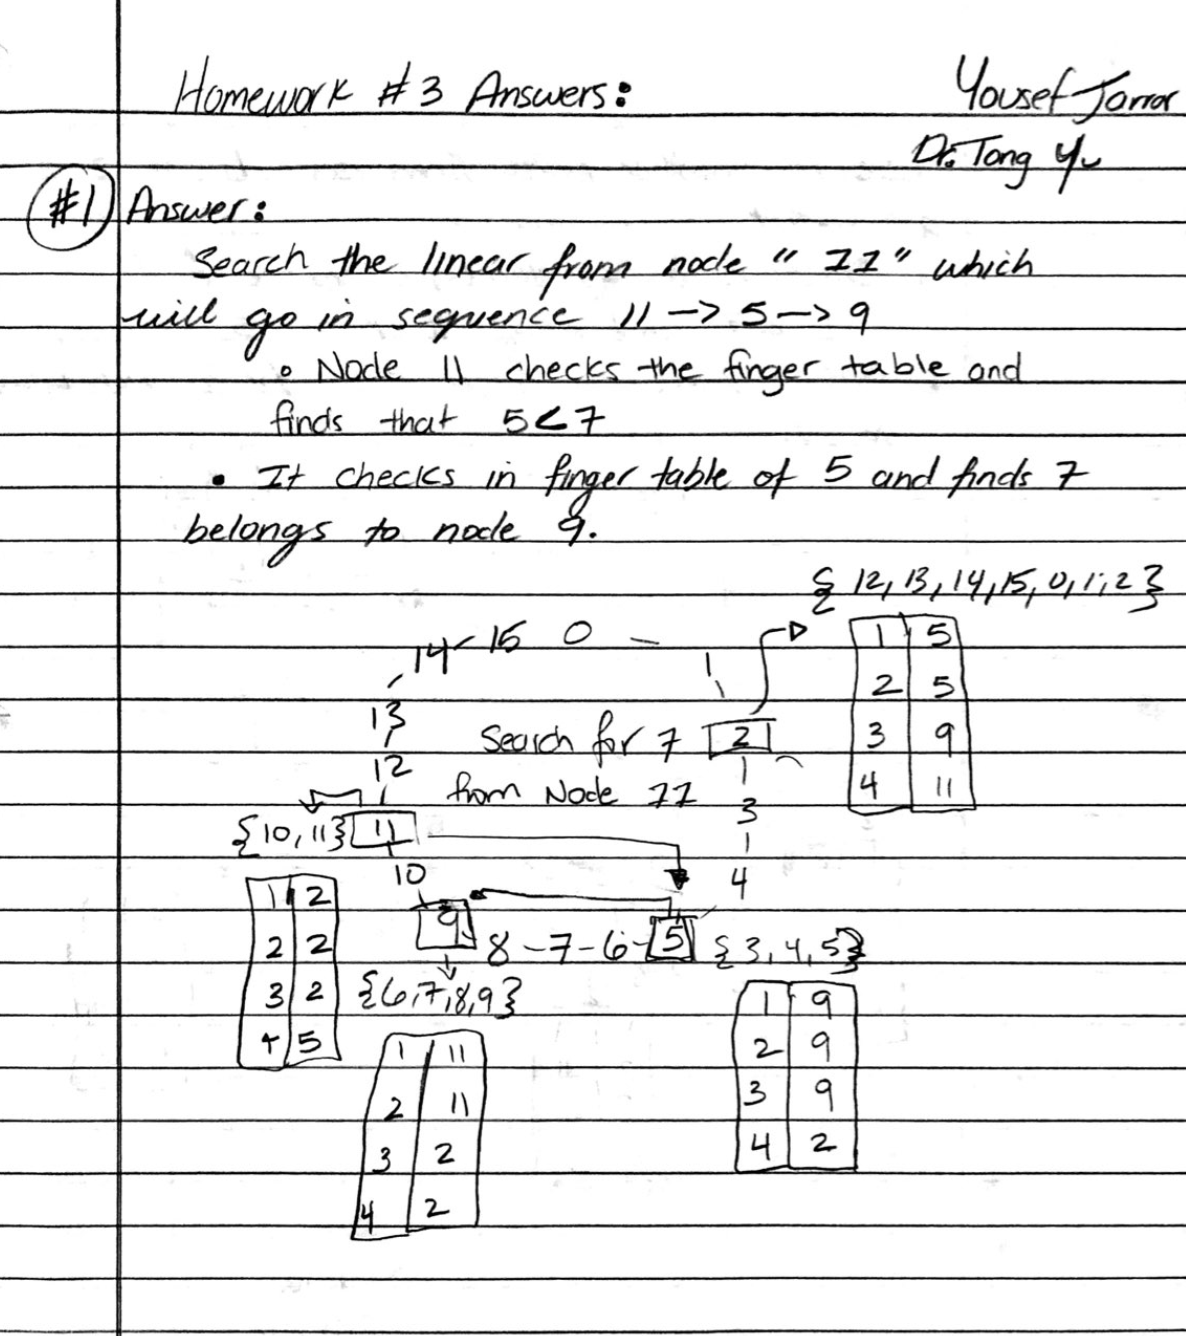 Homework #3 Answers:
Yousef Jarrar
Dr. Tong Yu
#1 Answer:
Search the linear from node "11" which
will go in sequence 11 -> 5 -> 9
• Node 11 checks the finger table and
finds that 5<7
• It checks in finger table of 5 and finds 7
belongs to node 9.
{12, 13, 14, 15, 0, 1, 2}
14 - 15 0 - 1
1 5
2 5
3 9
4 11
13
Search for 7 2
12
from Node 11
3
{10, 11} 11
10
4
1 2
2 2
3 2
4 5
9 - 8 - 7 - 6 - 5 {3, 4, 5}
{6, 7, 8, 9}
1 9
2 9
3 9
4 2
1 11
2 11
3 2
4 2